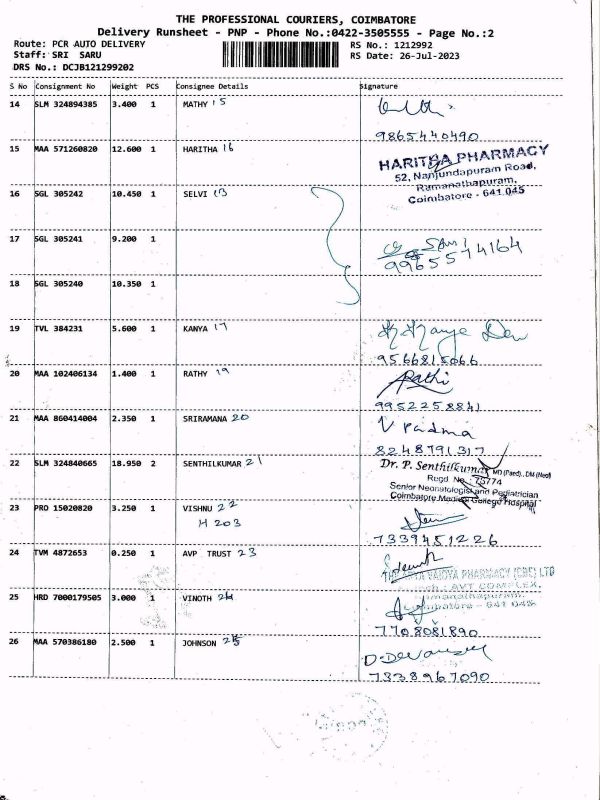 THE PROFESSIONAL COURIERS, COIMBATORE
Delivery Runsheet - PNP - Phone No.:0422-3505555 - Page No.:2
Route: PCR AUTO DELIVERY RS No.: 1212992
Staff: SRI SARU RS Date: 26-Jul-2023
DRS No.: DCJB121299202
S No Consignment No Weight PCS Consignee Details Signature
14 SLM 324894385 3.400 1 MATHY 15
9865440490
15 MAA 571260820 12.600 1 HARITHA 16
HARITHA PHARMACY
52, Nanjundapuram Road,
Ramanathapuram,
Coimbatore - 641 045
16 SGL 305242 10.450 1 SELVI
17 SGL 305241 9.200 1
9965574164
18 SGL 305240 10.350 1
19 TVL 384231 5.600 1 KANYA 17
9566815066
20 MAA 102406134 1.400 1 RATHY 19 Rathi
9952258841
21 MAA 860414004 2.350 1 SRIRAMANA 20 V Padma
8248791317
22 SLM 324840665 18.950 2 SENTHILKUMAR 21
Dr. P. Senthilkumar MD (Paed)., DM (Neo)
Regd No : 75774
Senior Neonatologist and Pediatrician
Coimbatore Medical College Hospital
23 PRO 15020820 3.250 1 VISHNU 22
H 203
7339451226
24 TVM 4872653 0.250 1 AVP TRUST 23
THE ARYA VAIDYA PHARMACY (CBE) LTD
AVT COMPLEX,
Ramanathapuram,
Coimbatore - 641 045
25 HRD 7000179505 3.000 1 VINOTH 24
7708081890
26 MAA 570386180 2.500 1 JOHNSON 25
7338967090